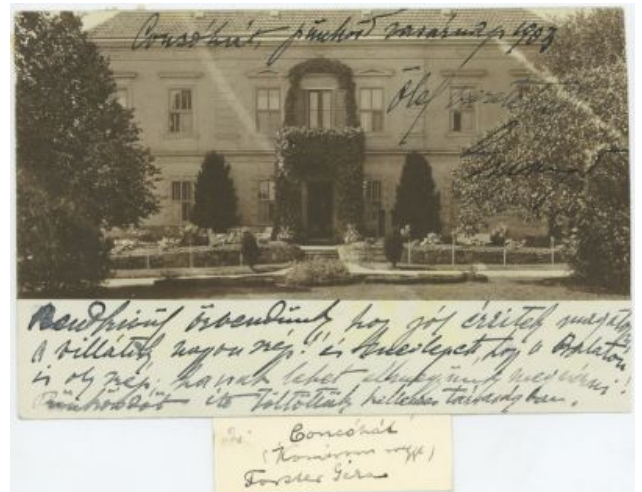 Concóhát, pünkösd vasárnap 1903
Ölel szerető
Rendkivül örvendünk hogy jól érzitek magatokat
a villátok nagyon szép! és meglepett, hogy a Balaton
is oly szép; lehet
Pünkösdöt itt töltöttük kellemes társaságban.
Concóhát
(Komárom megye)
Forster Géza